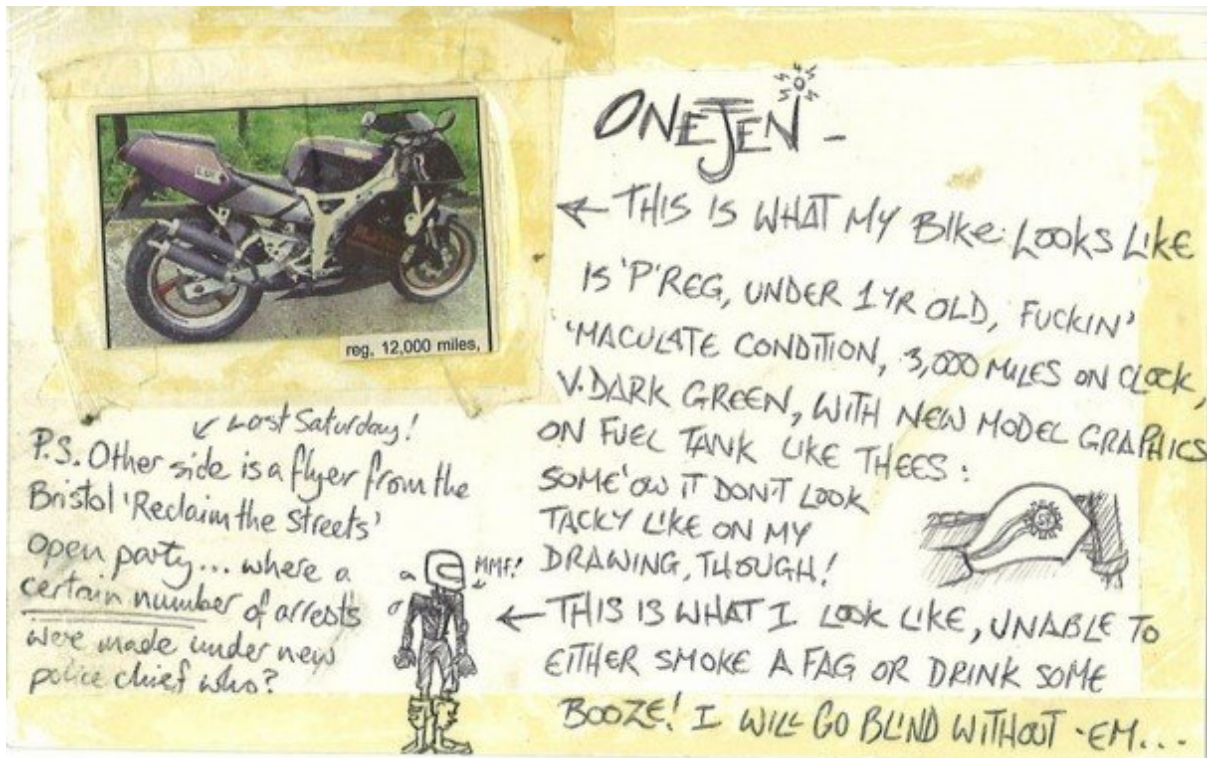 ONEJEN -
← THIS IS WHAT MY BIKE LOOKS LIKE
IS 'P' REG, UNDER 1 YR OLD, FUCKIN'
'MACULATE CONDITION, 3,000 MILES ON CLOCK,
V. DARK GREEN, WITH NEW MODEL GRAPHICS
ON FUEL TANK LIKE THEES:
SOME'OW IT DON'T LOOK
TACKY LIKE ON MY
DRAWING, THOUGH!
← THIS IS WHAT I LOOK LIKE, UNABLE TO
EITHER SMOKE A FAG OR DRINK SOME
BOOZE! I WILL GO BLIND WITHOUT 'EM...
MMF!
reg, 12,000 miles,
↙ Last Saturday!
P.S. Other side is a flyer from the
Bristol 'Reclaim the Streets'
open party... where a
certain number of arrests
were made under new
police chief who?